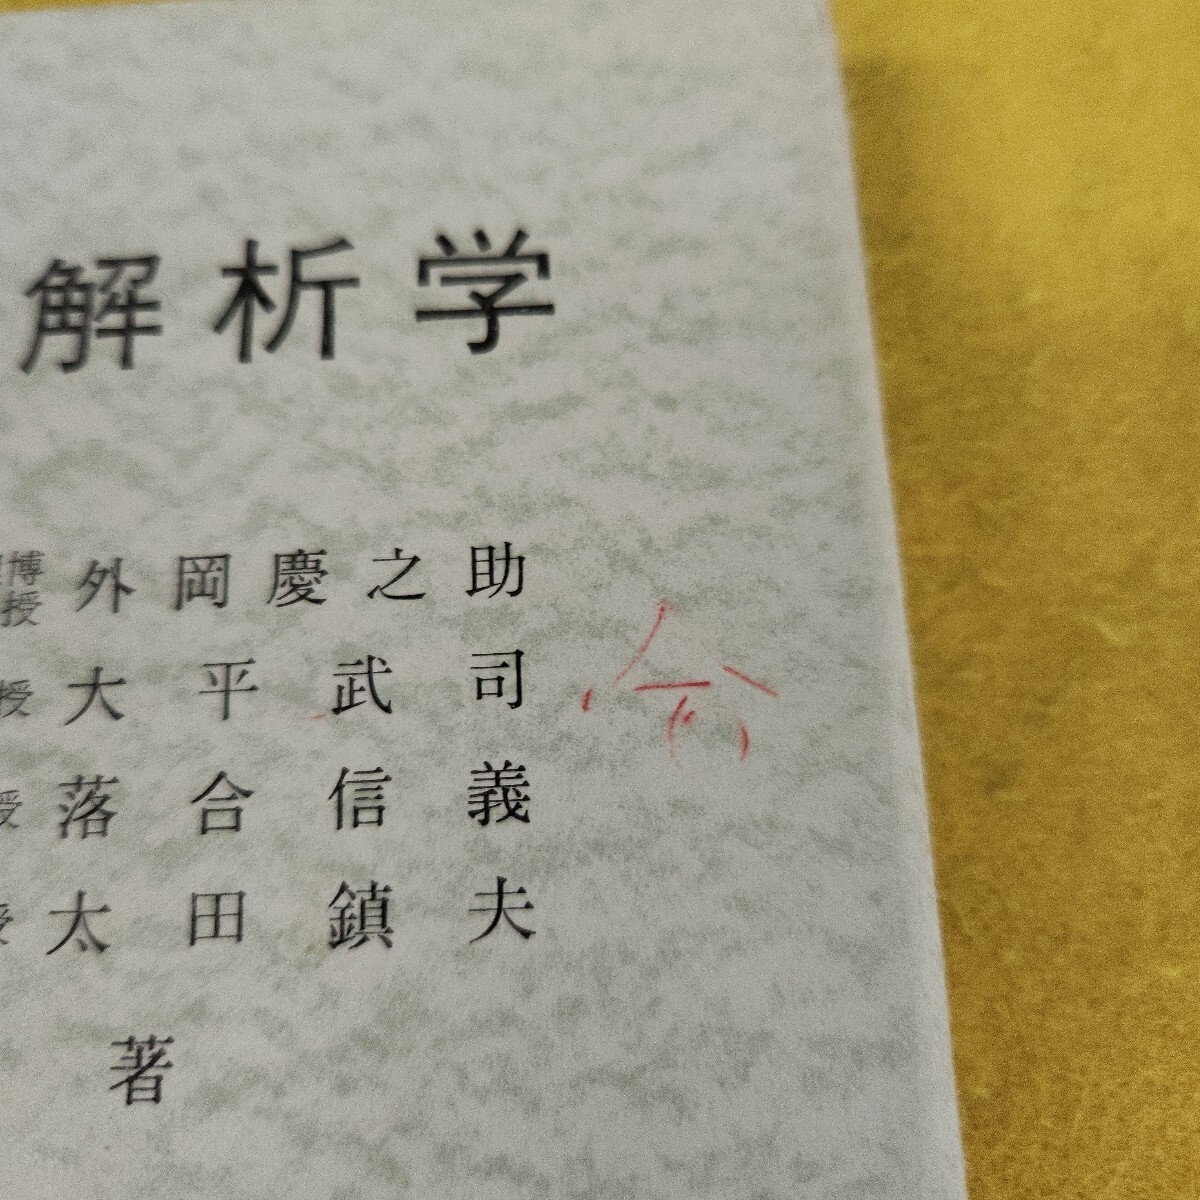 解析学
博 外岡慶之助
授
授 大平武司
授 落合信義
授 太田鎮夫
著